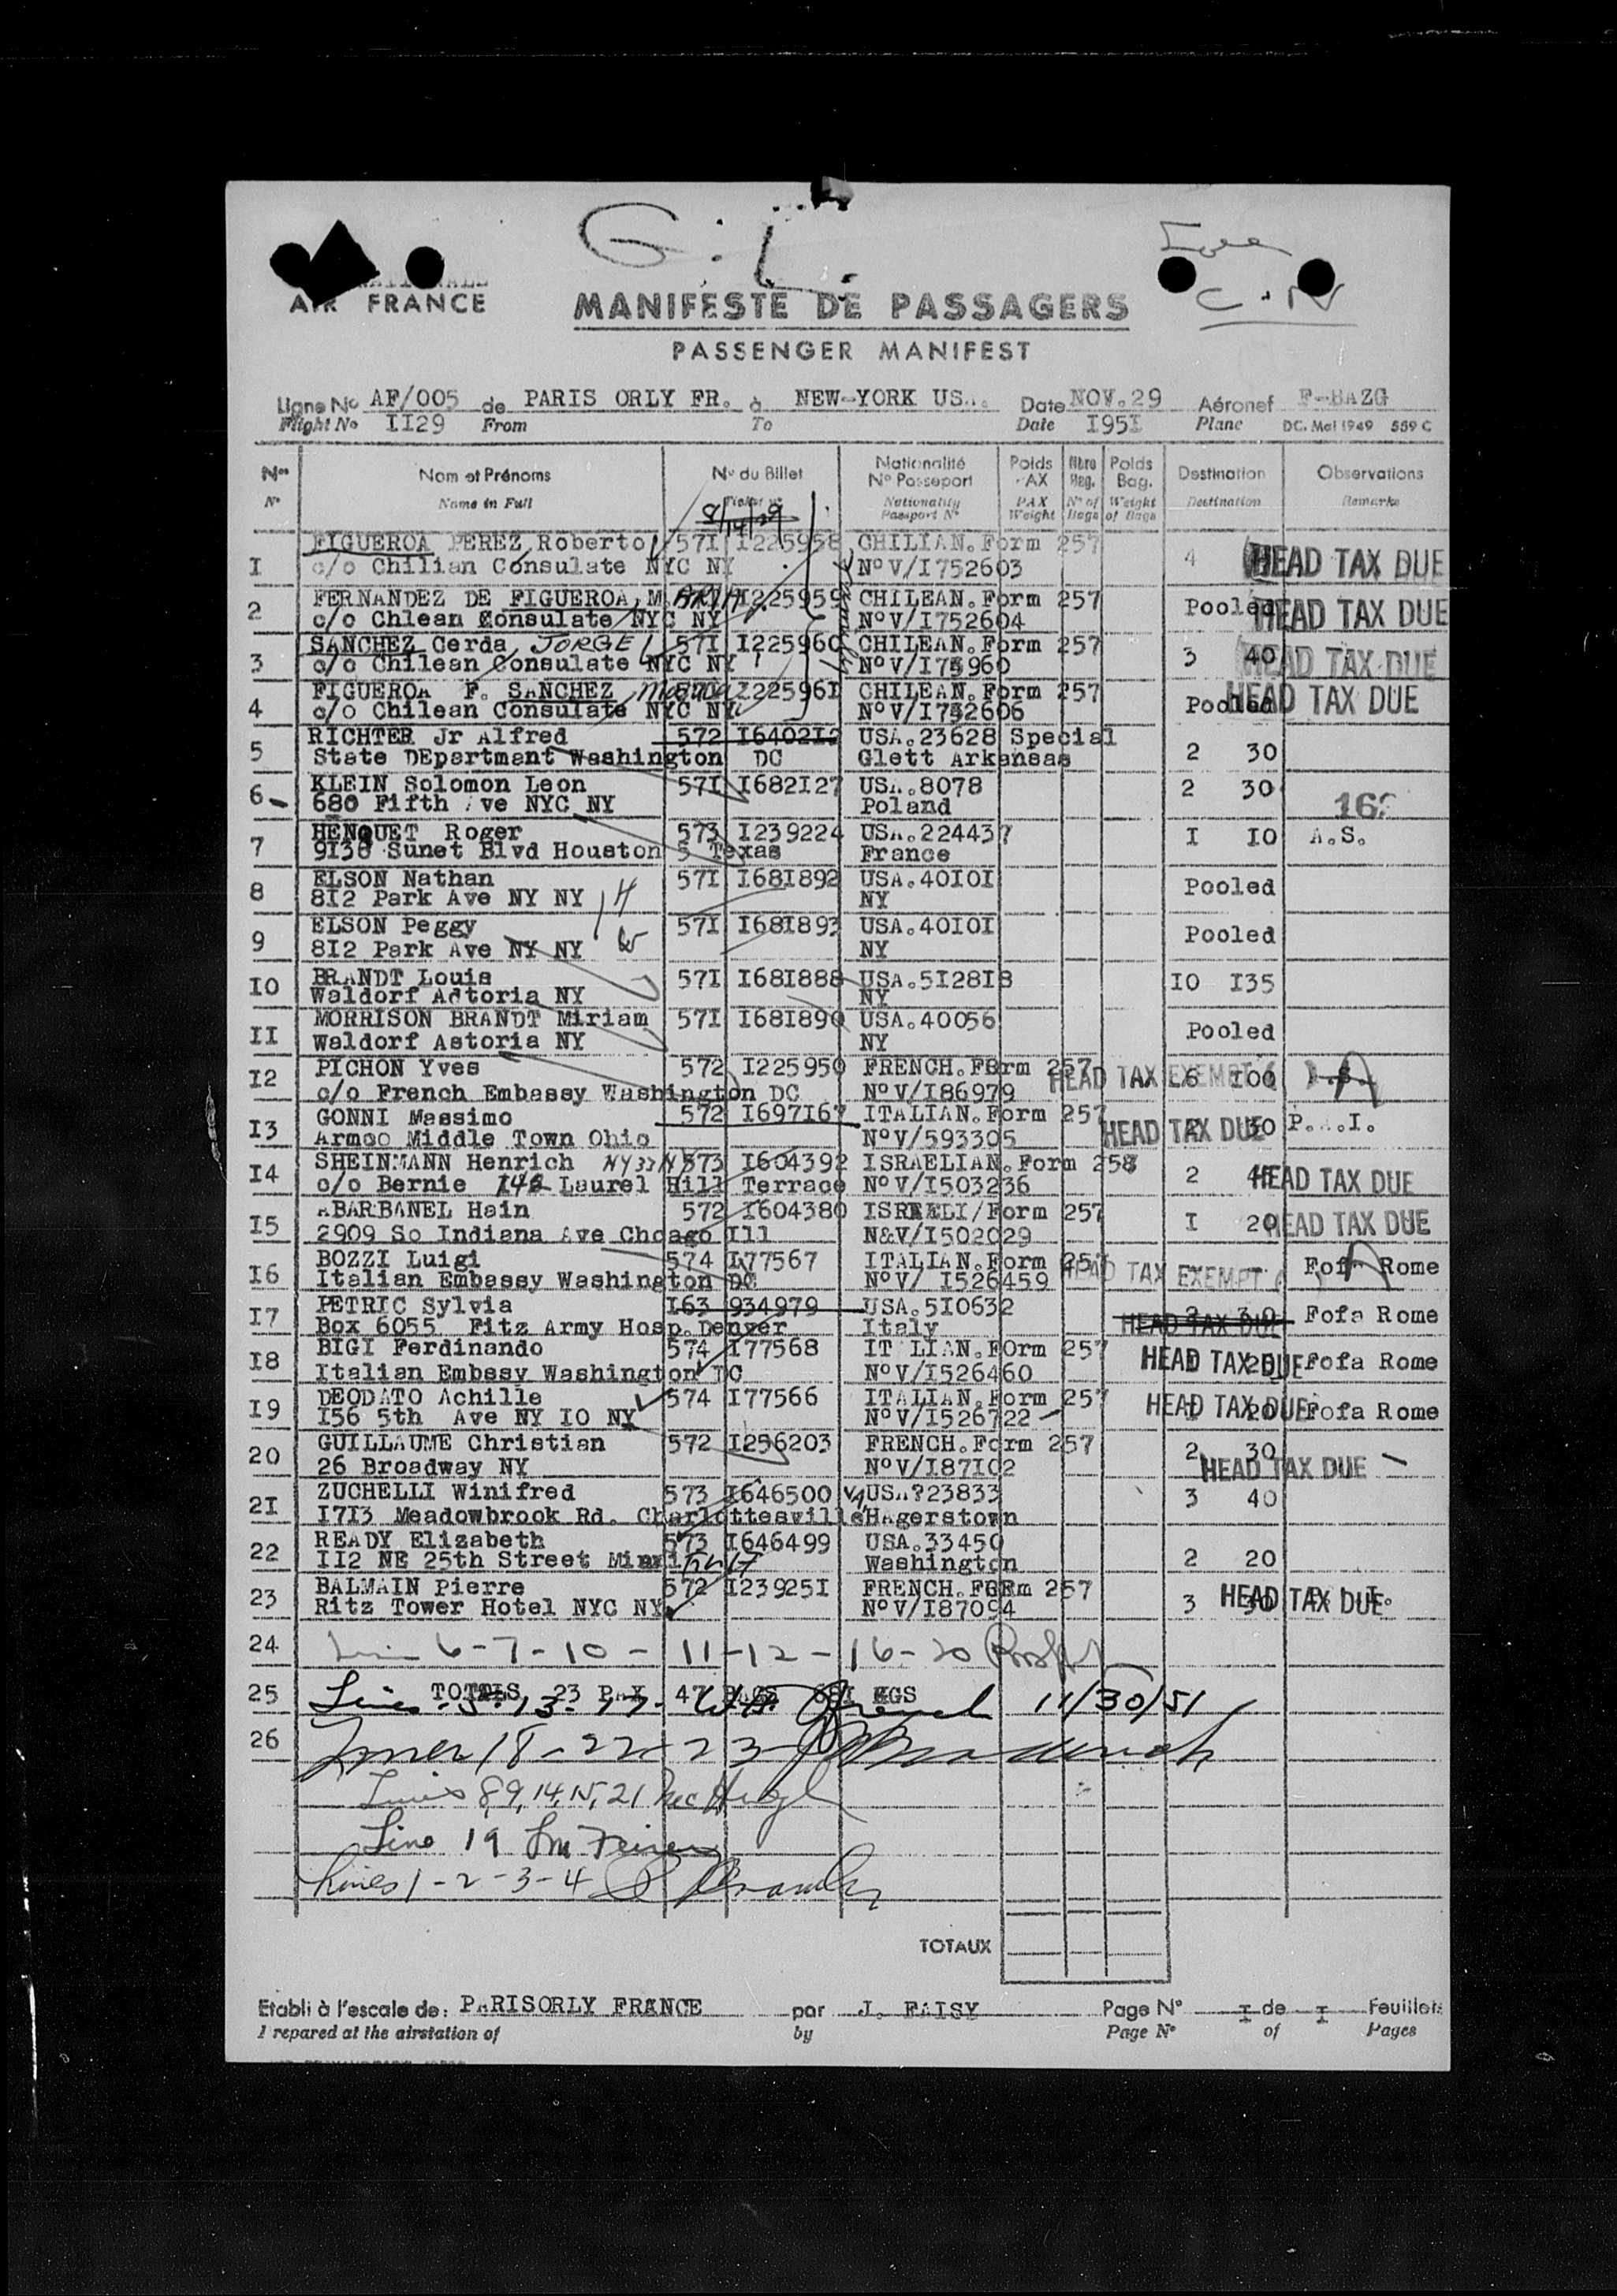 G.L.
C.N
AIR FRANCE
MANIFESTE DE PASSAGERS
PASSENGER MANIFEST
Ligne No AF/005 de PARIS ORLY FR. à NEW-YORK US... Date NOV.29 Aéronef F-BAZG
Flight No II29 From To Date I95I Plane DC. Mai 1949 559 C
Nos Nom et Prénoms No du Billet Nationalité No Passeport Poids PAX Nbre Bag. Poids Bag. Destination Observations
No Name in Full Ticket No Nationality Passport No PAX Weight No of Bags Weight of Bags Destination Remarks
I FIGUEROA PEREZ Roberto 57I I225958 CHILIAN.Form 257 4 HEAD TAX DUE
c/o Chilian Consulate NYC NY NoV/I752603
2 FERNANDEZ DE FIGUEROA, MARIA I225959 CHILEAN.Form 257 Pooled HEAD TAX DUE
c/o Chlean Consulate NYC NY NoV/I752604
3 SANCHEZ Cerda, JORGE 57I I225960 CHILEAN.Form 257 3 40 HEAD TAX DUE
c/o Chilean Consulate NYC NY
4 FIGUEROA F. SANCHEZ I22596I CHILEAN.Form 257 Pooled HEAD TAX DUE
c/o Chilean Consulate NYC NY NoV/I752606
5 RICHTER Jr Alfred 572 I640212 USA.23628 Special 2 30
State DEpartment Washington DC Glett Arkansas
6 KLEIN Solomon Leon 57I I682I27 USA.8078 2 30
680 Fifth Ave NYC NY Poland
7 HENQUET Roger 573 I239224 USA.22443? I I0 A.S.
9I38 Sunet Blvd Houston 5 Texas France
8 ELSON Nathan 57I I68I892 USA.40I0I Pooled
8I2 Park Ave NY NY NY
9 ELSON Peggy 57I I68I893 USA.40I0I Pooled
8I2 Park Ave NY NY NY
I0 BRANDT Louis 57I I68I888 USA.5I28I8 I0 I35
Waldorf Adtoria NY NY
II MORRISON BRANDT Miriam 57I I68I890 USA.40056 Pooled
Waldorf Astoria NY NY
I2 PICHON Yves 572 I225950 FRENCH.FBrm 257 HEAD TAX EXEMPT I00
c/o French Embassy Washington DC NoV/I86979
I3 GONNI Massimo 572 I697I67 ITALIAN.Form 257 HEAD TAX DUE 30 P.A.I.
Armco Middle Town Ohio NoV/593305
I4 SHEINMANN Henrich NY 33 NY 573 I604392 ISRAELIAN.Form 258 2 HEAD TAX DUE
c/o Bernie 142 Laurel Hill Terrace NoV/I503236
I5 ABARBANEL Hain 572 I604380 ISRAELI/Form 257 I 20 HEAD TAX DUE
2909 So Indiana Ave Chcago Ill N&V/I502029
I6 BOZZI Luigi 574 I77567 ITALIAN.Form 257 HEAD TAX EXEMPT Fofa Rome
Italian Embassy Washington DC NoV/ I526459
I7 PETRIC Sylvia I63 934979 USA.5I0632 HEAD TAX DUE 2 30 Fofa Rome
Box 6055 Fitz Army Hosp.Denver Italy
I8 BIGI Ferdinando 574 I77568 IT LIAN.FOrm 257 HEAD TAX DUE 20 Fofa Rome
Italian Embasy Washington DC NoV/I526460
I9 DEODATO Achille 574 I77566 ITALIAN.Form 257 HEAD TAX DUE 20 Fofa Rome
I56 5th Ave NY I0 NY NoV/I526722
20 GUILLAUME Christian 572 I256203 FRENCH.Form 257 2 30
26 Broadway NY NoV/I87I02 HEAD TAX DUE
2I ZUCHELLI Winifred 573 I646500 VA USA?23833 3 40
I7I3 Meadowbrook Rd. Charlottesville Hagerstown
22 READY Elizabeth 573 I646499 USA.33450 2 20
II2 NE 25th Street Miami Washington
23 BALMAIN Pierre 572 I23925I FRENCH.FORm 257 3 30 HEAD TAX DUE
Ritz Tower Hotel NYC NY NoV/I87094
24 6-7-10-11-12-16-20
25 TOTALS 23 PAX 47 BAGS 65I KGS
Lines 5-13-17- 11/30/51
26 Lines 18-22-23-
Lines 8,9,14,15,21
Line 19
Lines 1-2-3-4
TOTAUX
Etabli à l'escale de: PARISORLY FRANCE par J. FAISY Page No I de I Feuillets
Prepared at the airstation of by Page No of Pages